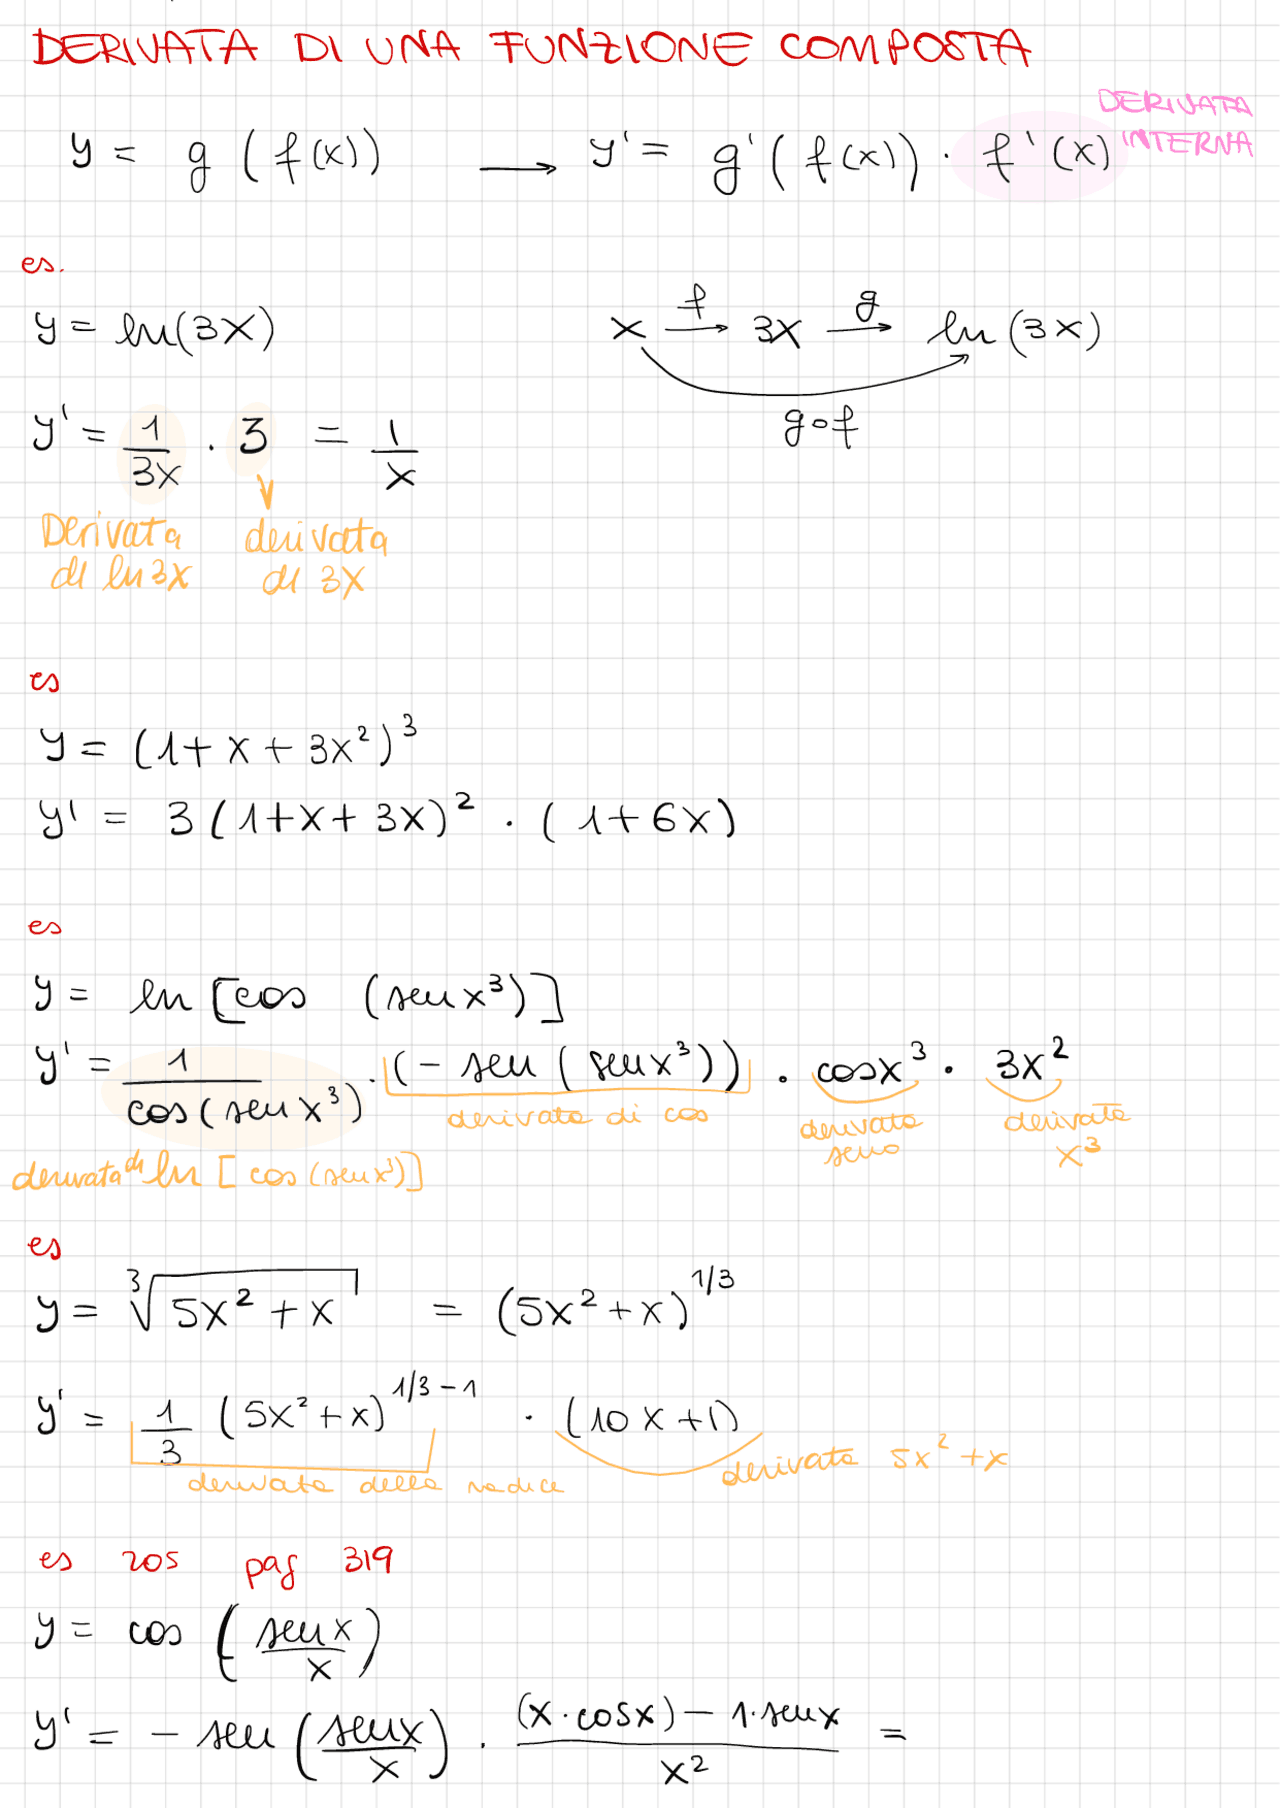 DERIVATA DI UNA FUNZIONE COMPOSTA
y = g (f(x)) → y' = g'(f(x)) · f'(x) DERIVATA INTERNA
es.
y = ln(3x)
x →f 3x →g ln(3x)
g∘f
y' = 1/3x · 3 = 1/x
Derivata di ln 3x
derivata di 3x
es
y = (1+x+3x²)³
y' = 3(1+x+3x)² · (1+6x)
es
y = ln [cos (senx³)]
y' = 1/cos(senx³) · (- sen (senx³)) · cosx³ · 3x²
derivata di cos
derivata seno
derivata x³
derivata di ln [cos(senx³)]
es
y = ³√5x²+x = (5x²+x)^1/3
y' = 1/3 (5x²+x)^1/3-1 · (10x+1)
derivata della radice
derivata 5x²+x
es 205 pag 319
y = cos (senx/x)
y' = - sen (senx/x) · (x·cosx) - 1·senx/x² =